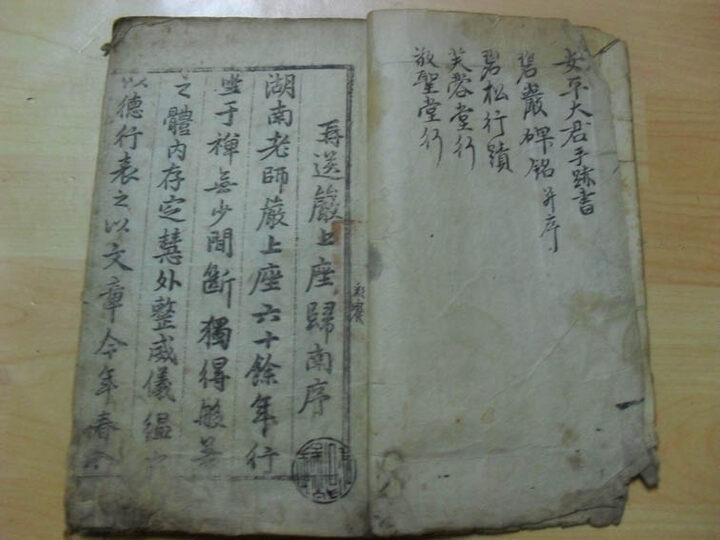 安平大君手跡書
碧巖碑銘并序
碧松行蹟
芙蓉堂行
敬聖堂行
再送嚴上座歸南序
湖南老師嚴上座六十餘年行
坐于禪無少間斷獨得般若
之體內存定慧外整威儀縕
以德行表之以文章今年春